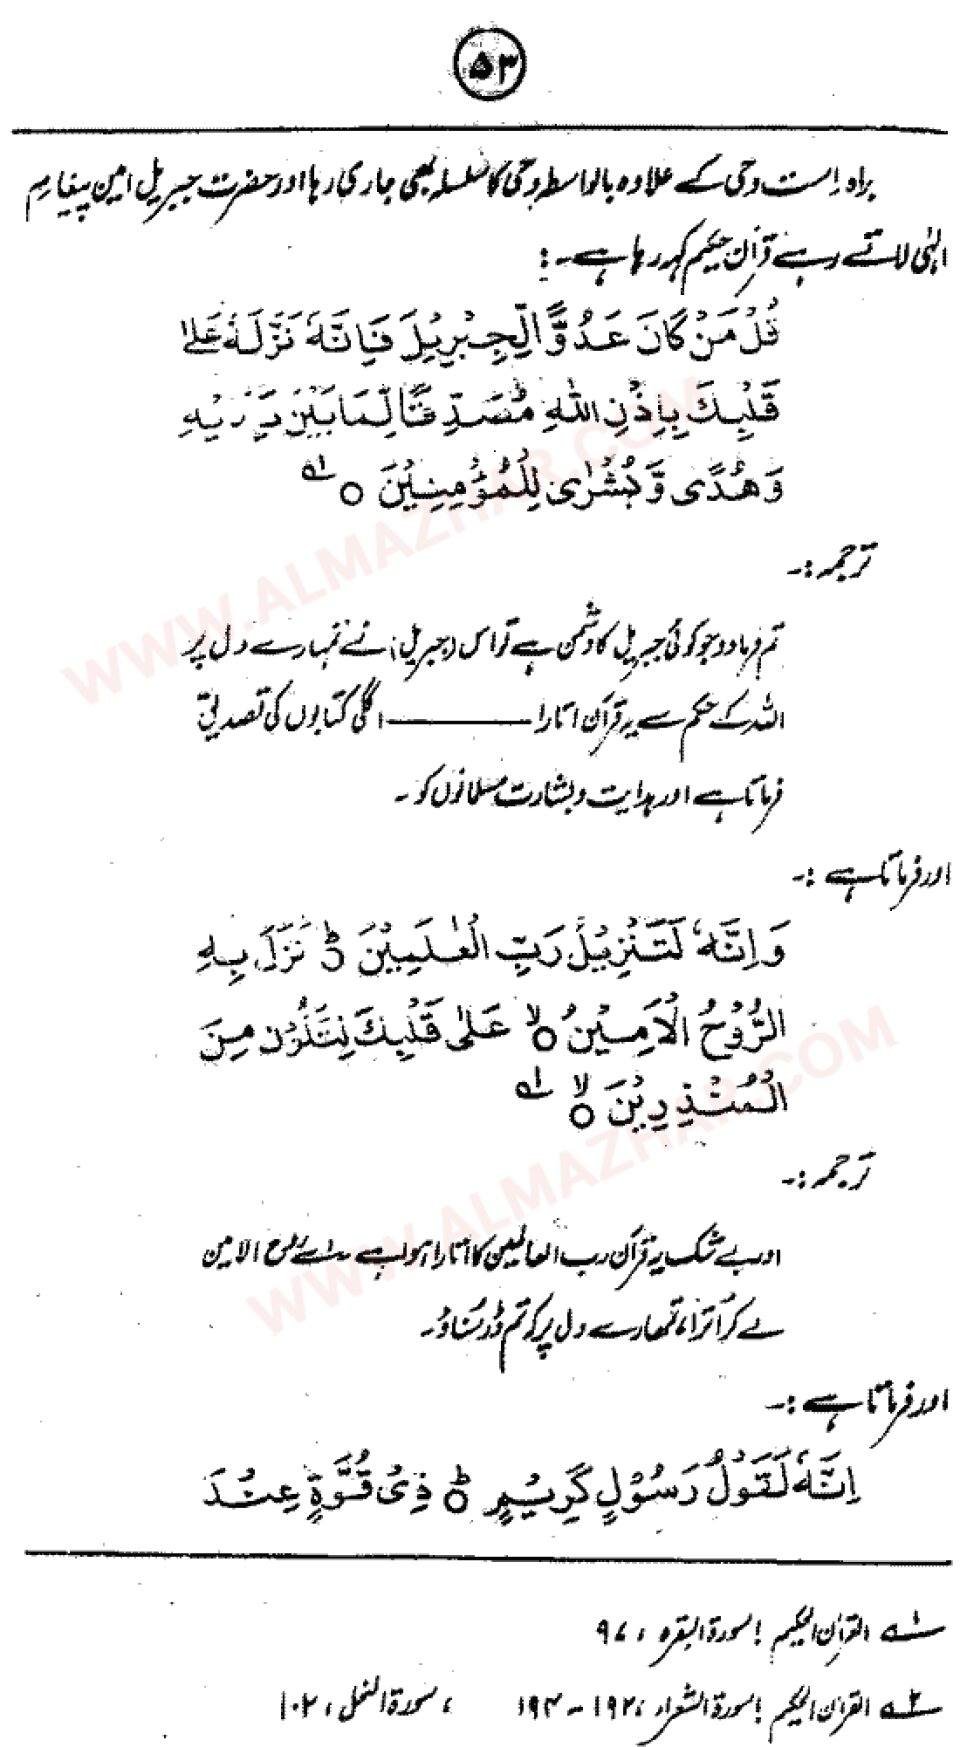 ۵۳
براہ راست وحی کے علاوہ بالواسطہ وحی کا سلسلہ بھی جاری رہا اور حضرت جبریل امین پیغام
الٰہی لاتے رہے قرآن حکیم کہہ رہا ہے۔:
قُلْ مَنْ كَانَ عَدُوًّا لِّجِبْرِيْلَ فَاِنَّهٗ نَزَّلَهٗ عَلٰى
قَلْبِكَ بِاِذْنِ اللهِ مُصَدِّقًا لِّمَا بَيْنَ يَدَيْهِ
وَهُدًى وَّبُشْرٰى لِلْمُؤْمِنِيْنَ ○ ۱؎
ترجمہ :۔
تم فرما دو جو کوئی جبریل کا دشمن ہے تو اس (جبریل) نے تمہارے دل پر
اللہ کے حکم سے یہ قرآن اتارا ——— اگلی کتابوں کی تصدیق
فرماتا ہے اور ہدایت و بشارت مسلمانوں کو ۔
اور فرماتا ہے :۔
وَاِنَّهٗ لَتَنْزِيْلُ رَبِّ الْعٰلَمِيْنَ ○ؕ نَزَلَ بِهِ
الرُّوْحُ الْاَمِيْنُ ○ۙ عَلٰى قَلْبِكَ لِتَكُوْنَ مِنَ
الْمُنْذِرِيْنَ ○ۙ ۱؎
ترجمہ :۔
اور بے شک یہ قرآن رب العالمین کا اتارا ہوا ہے ۔ اسے روح الامین
لے کر اُترا، تمھارے دل پر کہ تم ڈر سناؤ۔
اور فرماتا ہے :۔
اِنَّهٗ لَقَوْلُ رَسُوْلٍ كَرِيْمٍ ○ؕ ذِىْ قُوَّةٍ عِنْدَ
۱؎ القرآن الحکیم ! سورۃ البقرہ ، ۹۷
۲؎ القرآن الحکیم ! سورۃ الشعراء ، ۱۹۲ - ۱۹۴ ، سورۃ النحل ، ۱۰۲
WWW.ALMAZHAR.COM
WWW.ALMAZHAR.COM